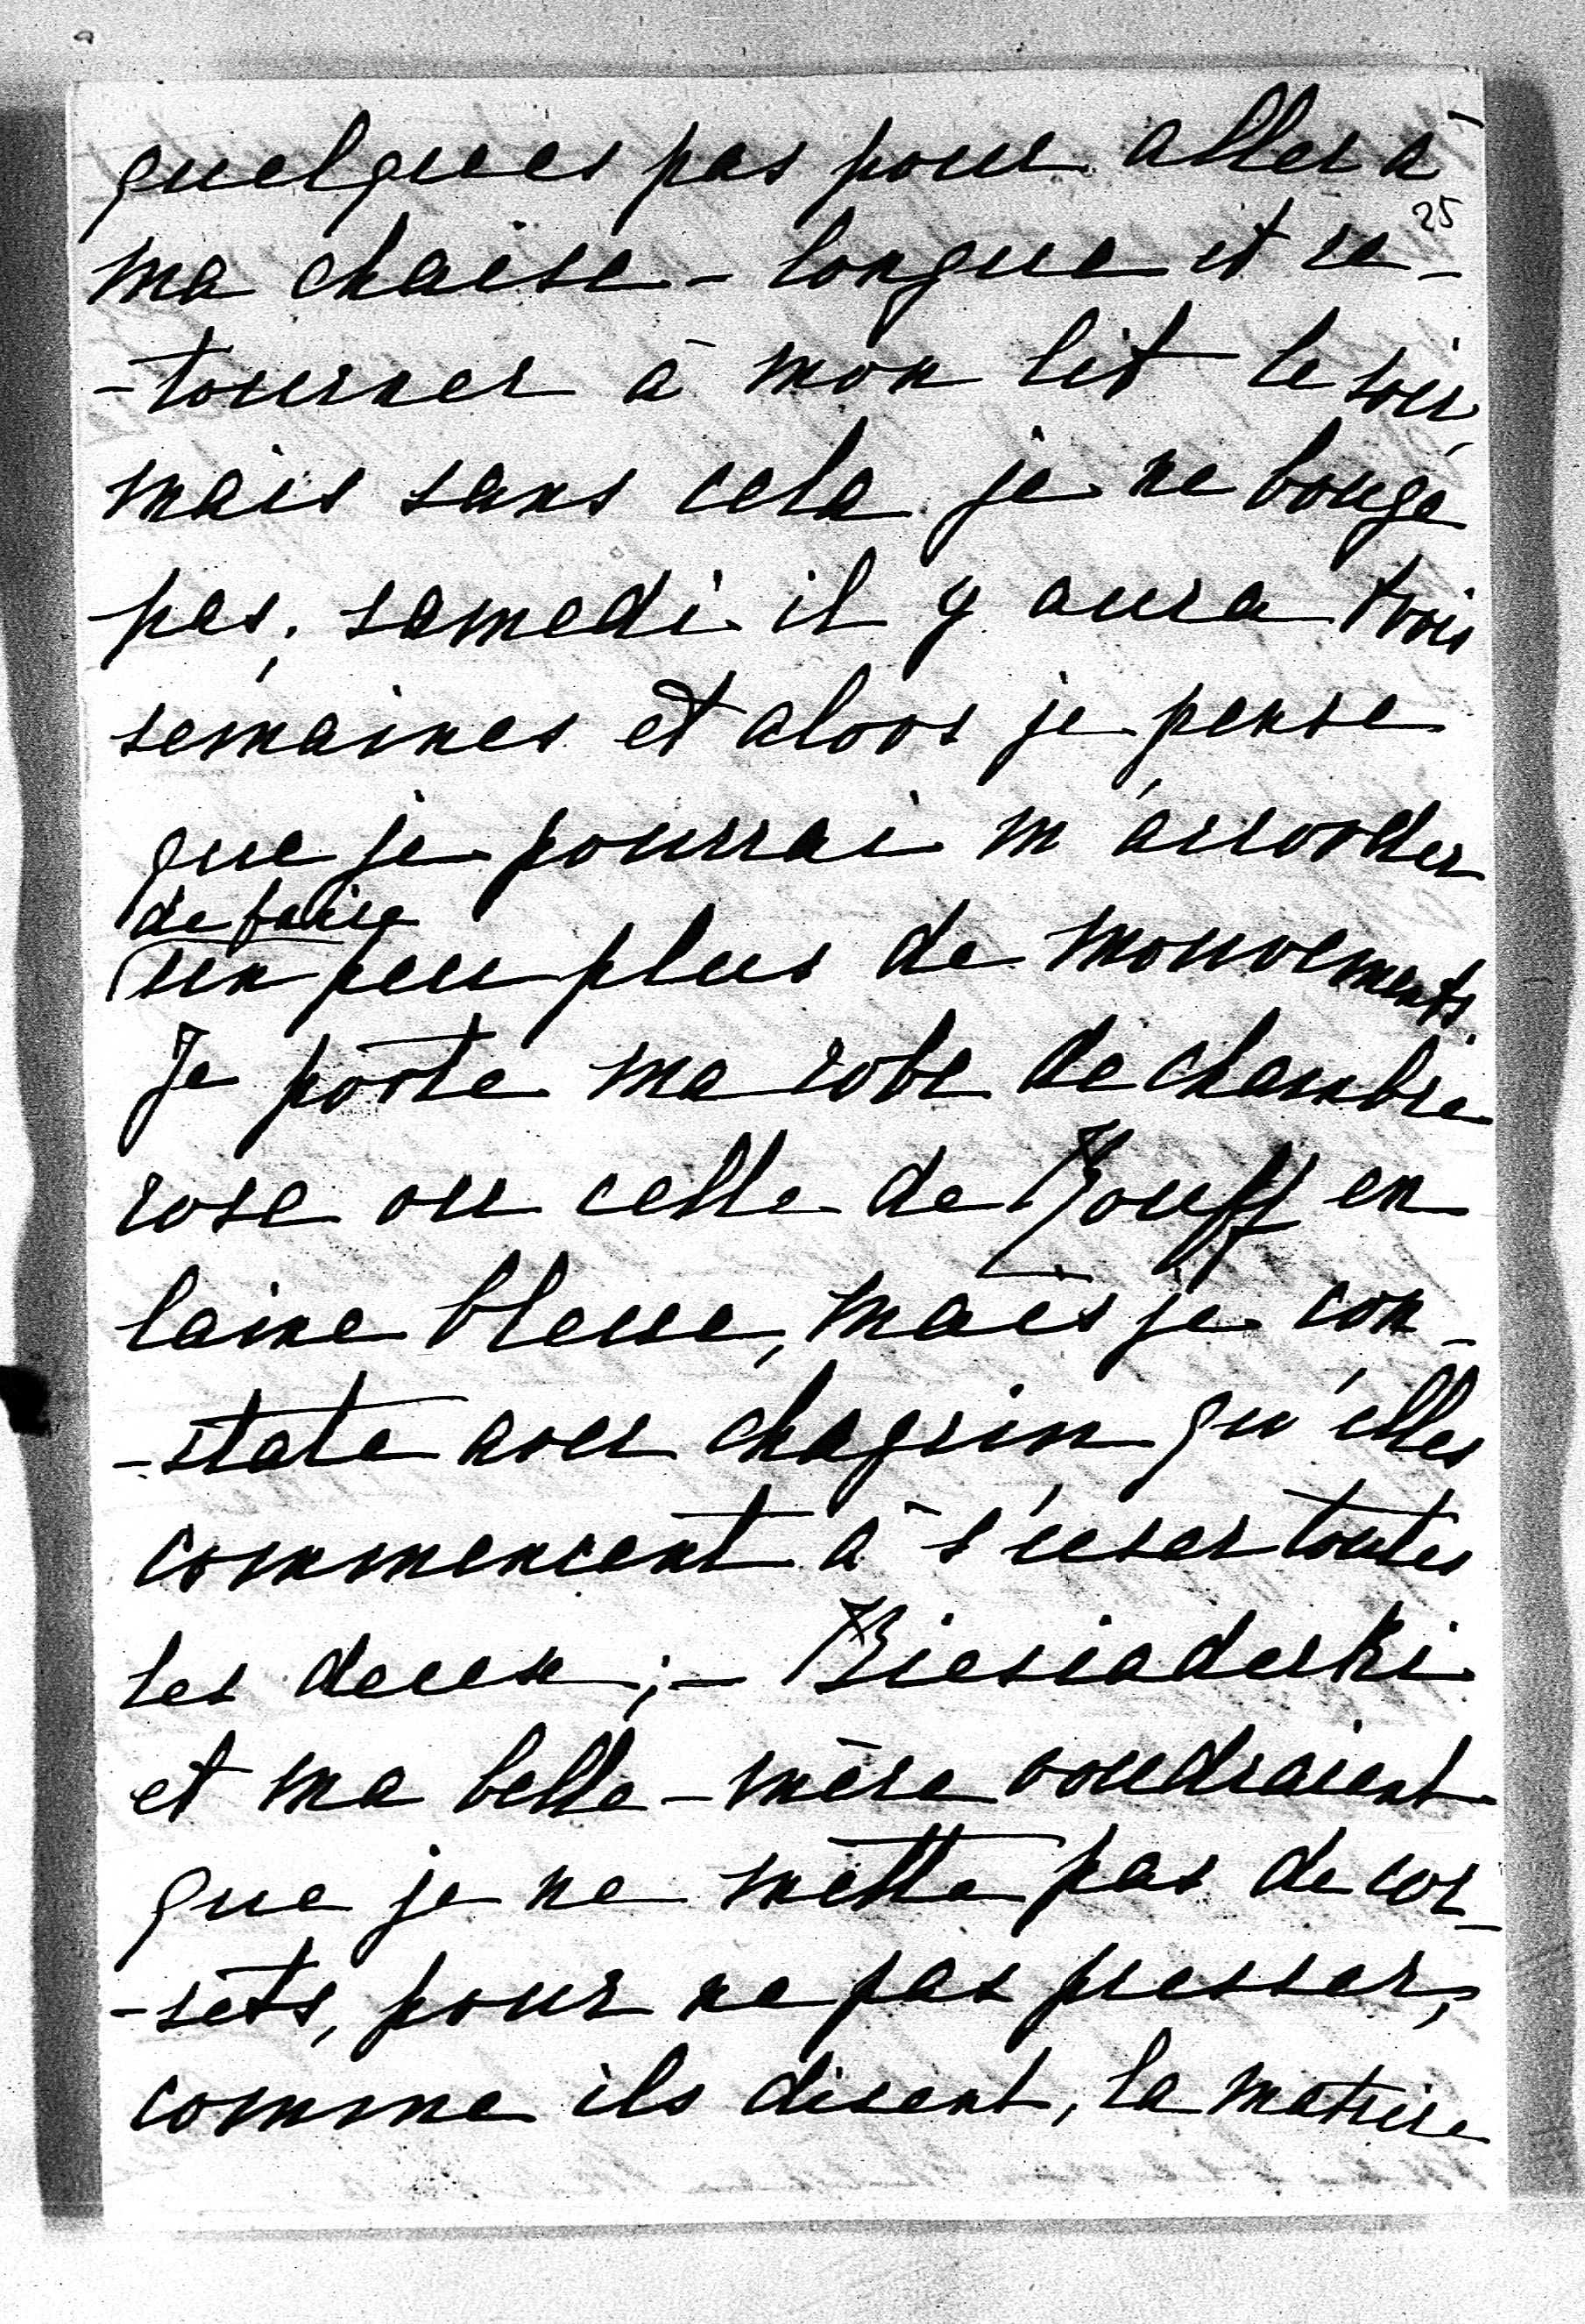 quelques pas pour aller à
25
ma chaise-longue et re-
-tourner à mon lit le soir,
mais sans cela je ne bouge
pas, samedi il y aura trois
semaines et alors je pense
que je pourrai m'accorder
de faire
un peu plus de mouvements.
Je porte ma robe de chambre
rose ou celle de Rouff en
laine bleue, mais je con-
-state avec chagrin qu'elles
commencent à s'user toutes
les deux; – Biesiaderki
et ma belle-mère voudraient
que je ne mette pas de cor-
-sets, pour ne pas presser,
comme ils disent, la matrice